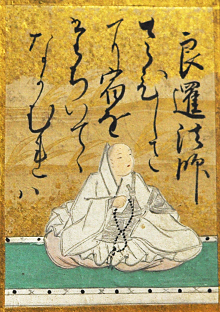 良暹法師
さひしさ
に宿を
たちいてゝ
なかむれは